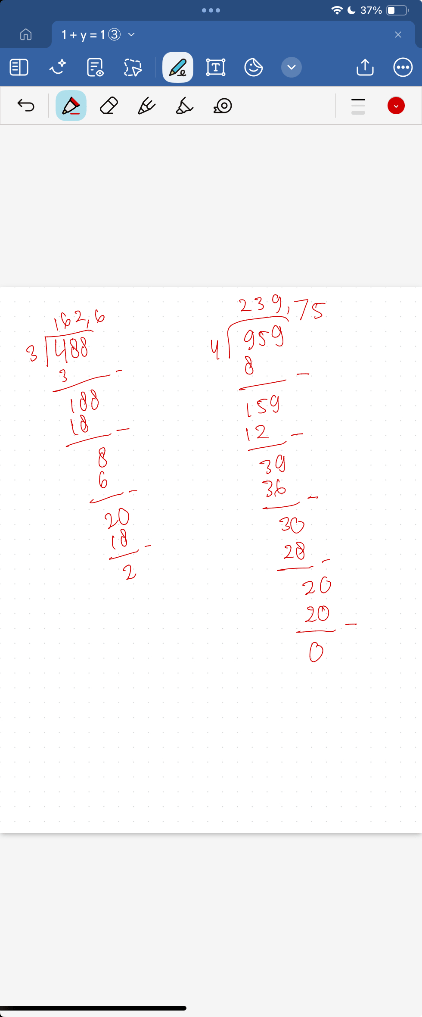 37%
1 + y = 1③
162,6
3 488
3
188
18
8
6
20
18
2
239,75
4 959
8
159
12
39
36
30
28
20
20
0